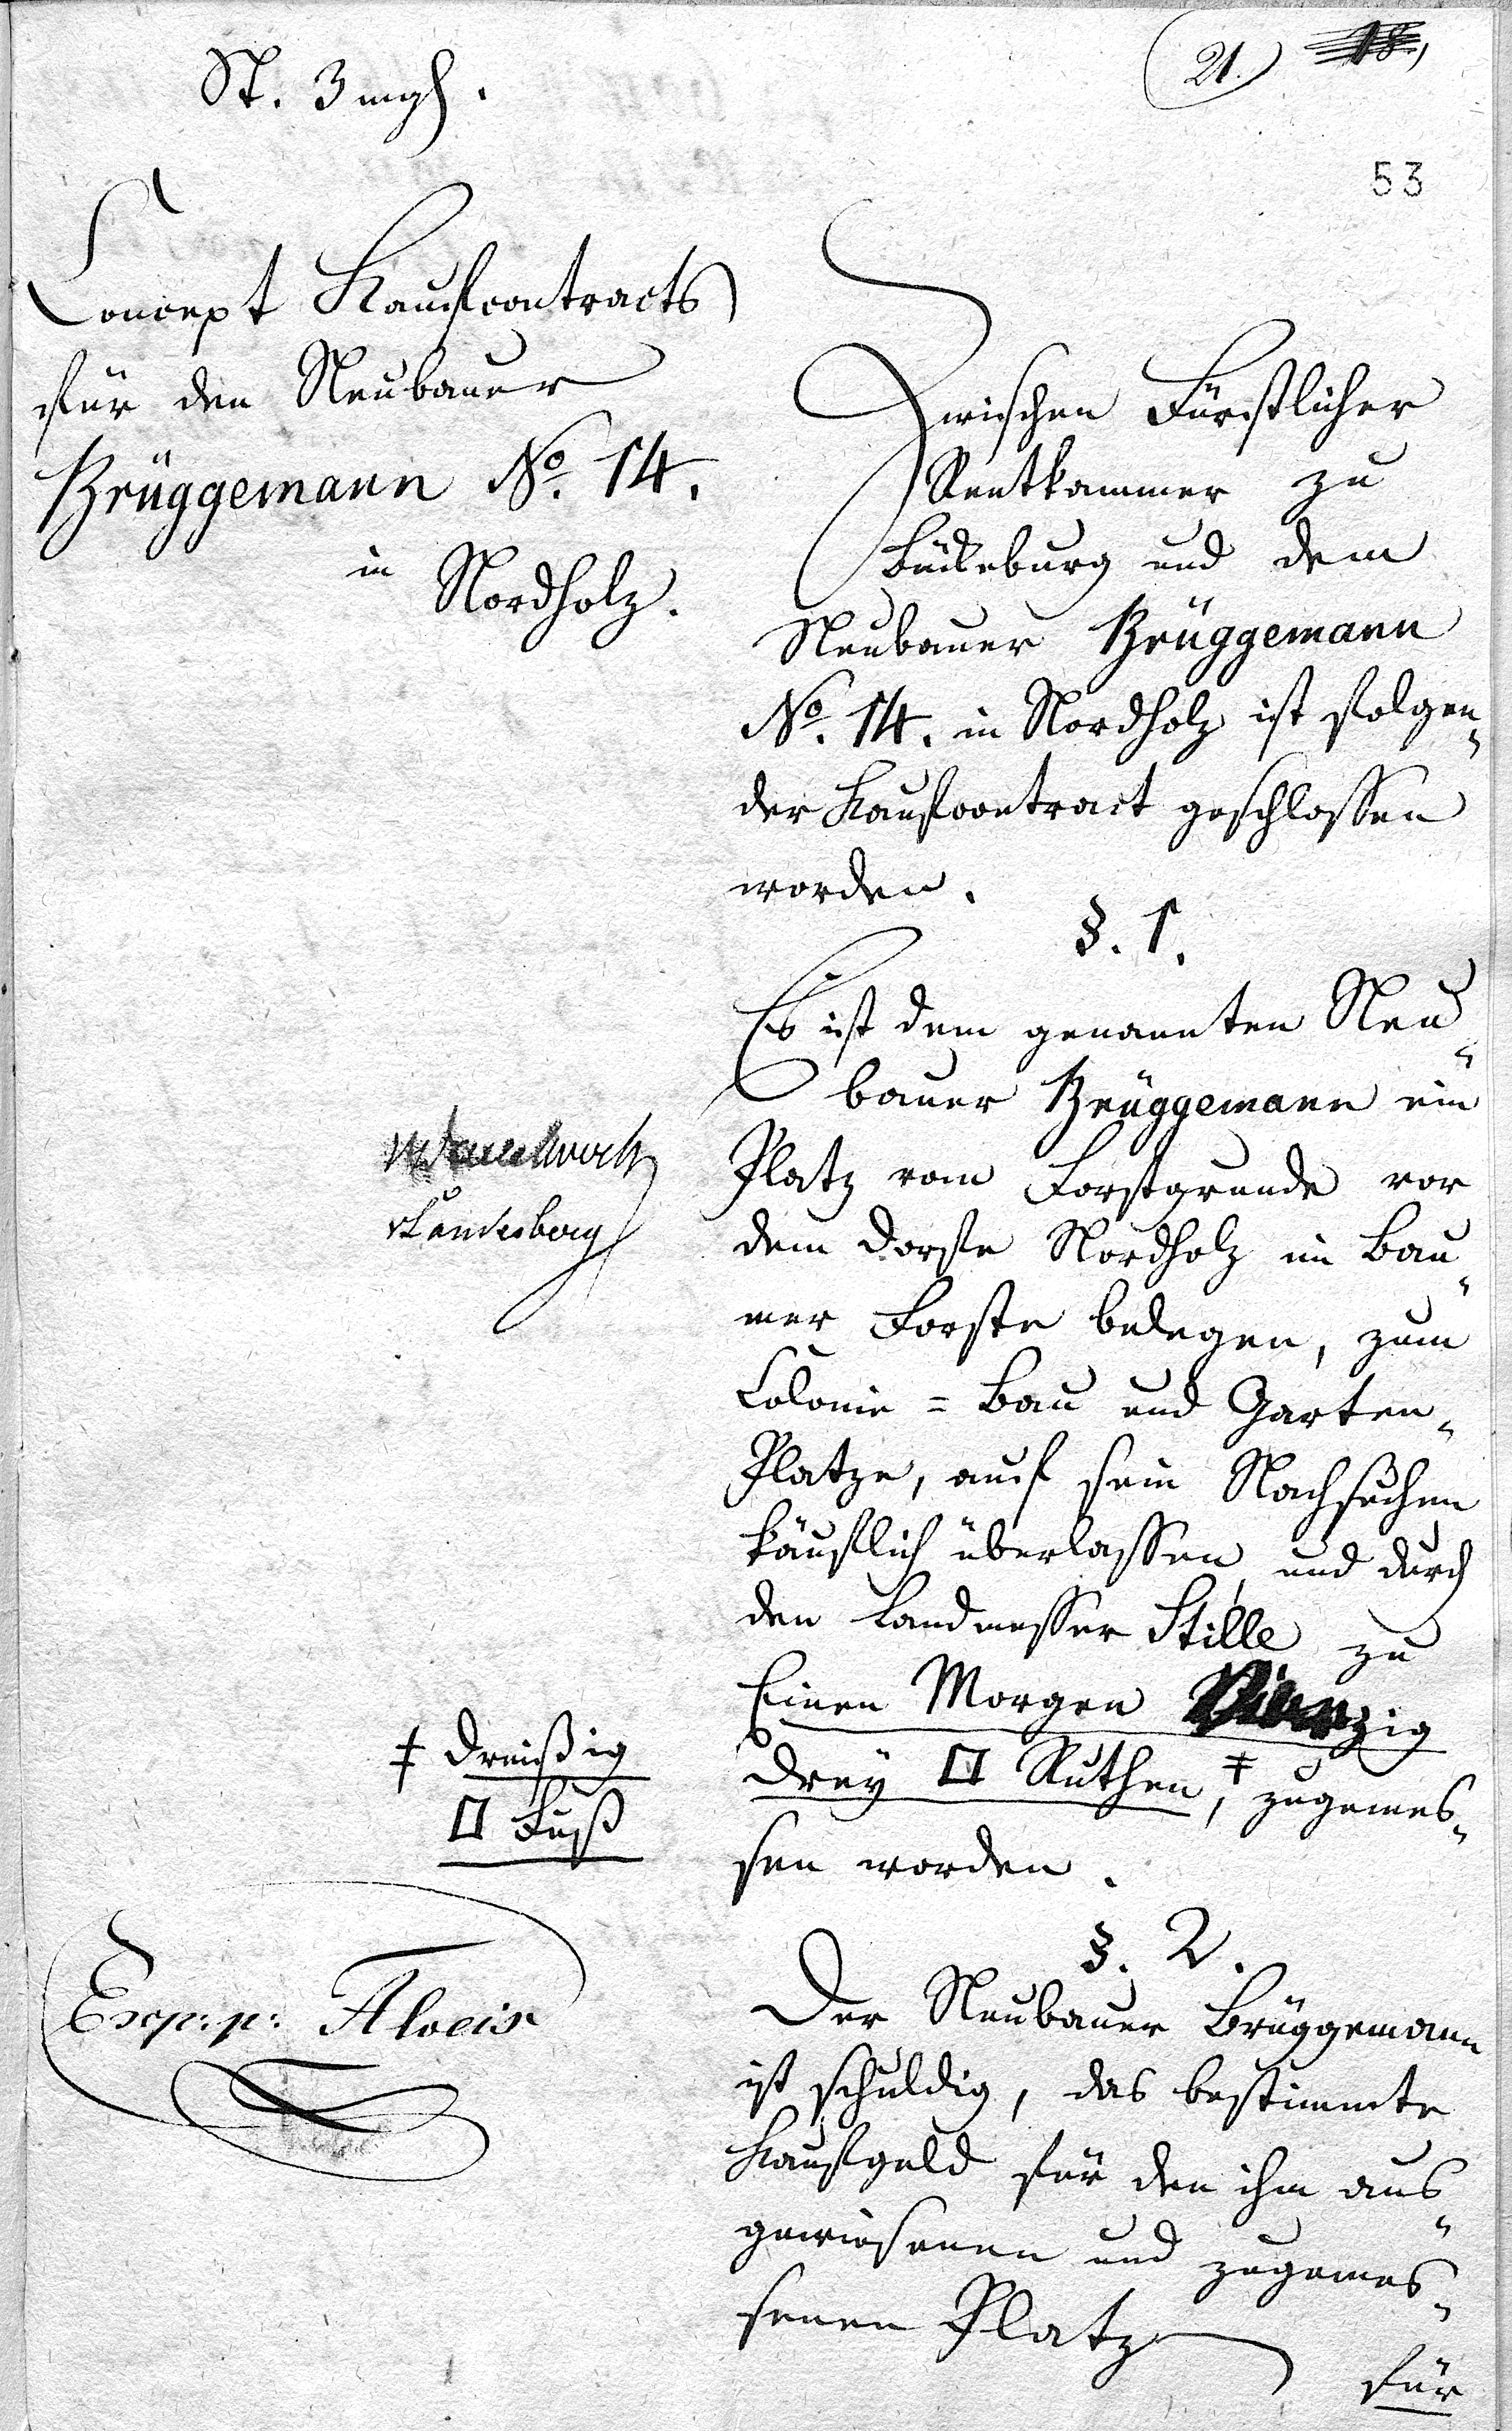 St. 3 mgh.
(21.) 18,
53
Concept Kaufcontracts
für den Neubauer
Brüggemann No. 14.
in Nordholz.
Zwischen Fürstlicher
Rentkammer zu
Bückeburg und dem
Neubauer Brüggemann
No. 14. in Nordholz ist folgen„
der Kaufcontract geschlossen
worden.
§. 1.
Es ist dem genannten Neu„
bauer Brüggemann ein
Platz vom Forstgrunde vor
dem Dorfe Nordholz im Bau„
mer Forste belegen, zum
Colonie = Bau und Garten„
Platze, auf sein Nachsuchen
käuflich überlassen, und durch
den Landmesser Stille zu
Einen Morgen Vierzig
drey □ Ruthen, ‡ zugemes„
sen worden.
‡ dreißig
□ Fuß
§. 2.
Der Neubauer Brüggemann
ist schuldig, das bestimmte
Kaufgeld für den ihm aus„
gewiesenen und zugemes„
senen Platz
für
vLandesberg
Exp: p: